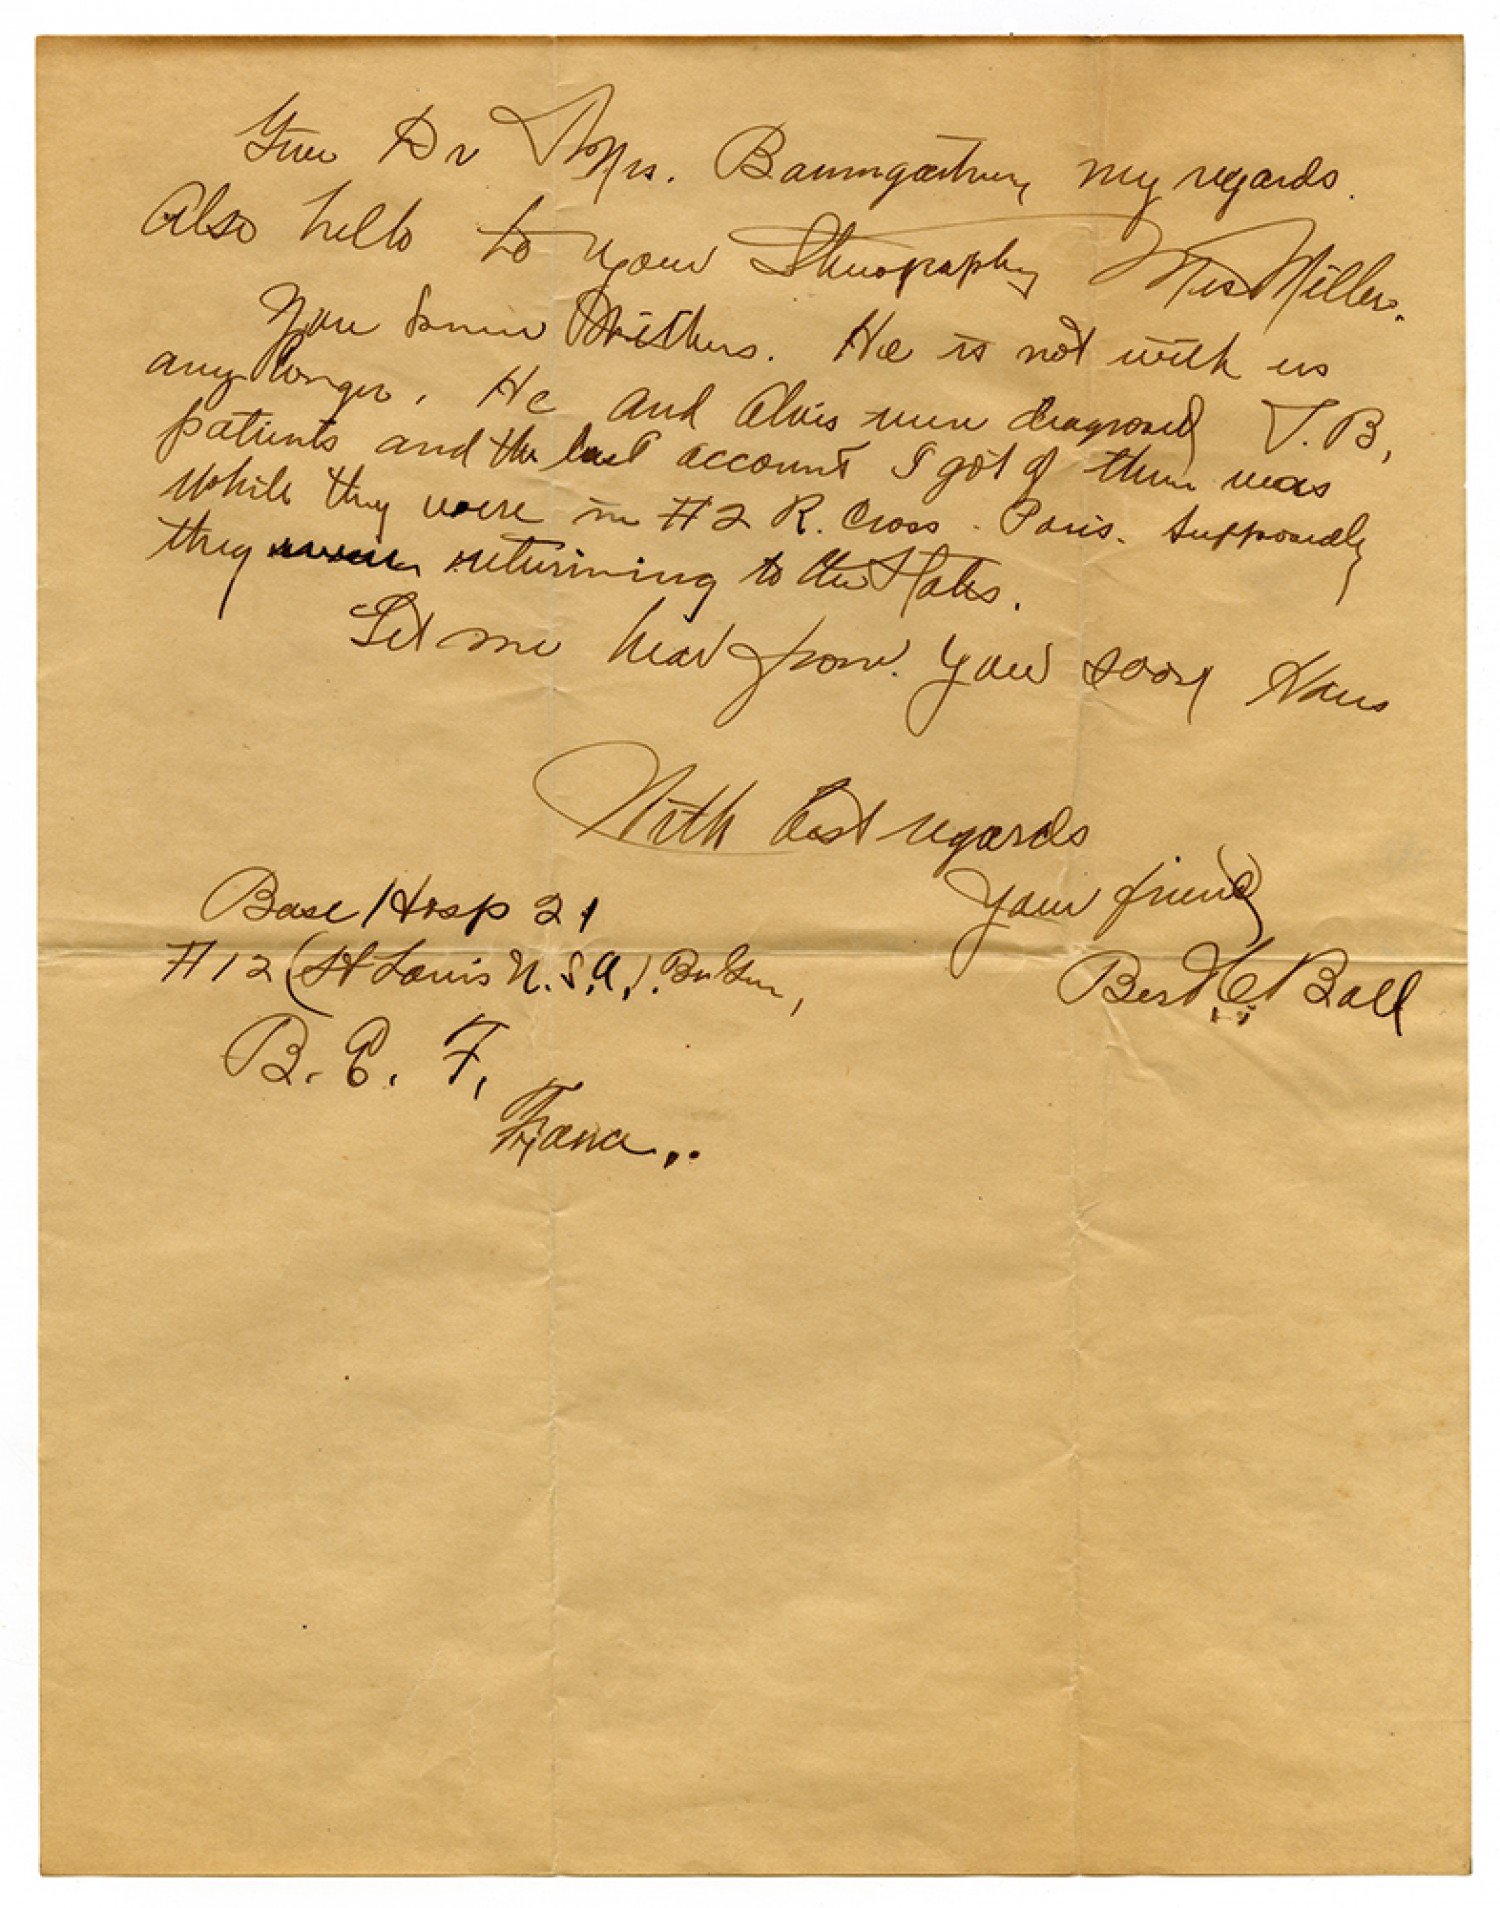 Give Dr & Mrs. Baumgartner my regards.
Also hello to your Stenography Miss Miller.
You know Withers. He is not with us
any longer. He and Alvis were diagnosed T.B,
patients and the last account I got of them was
while they were in #2 R. Cross - Paris. Supposedly
they returning to the States.
Let me hear from you soon Hans
With best regards
Your friend
Bert C Ball
Base Hosp 21
#12 (St Louis U.S.A.)
B. E. F.
France..